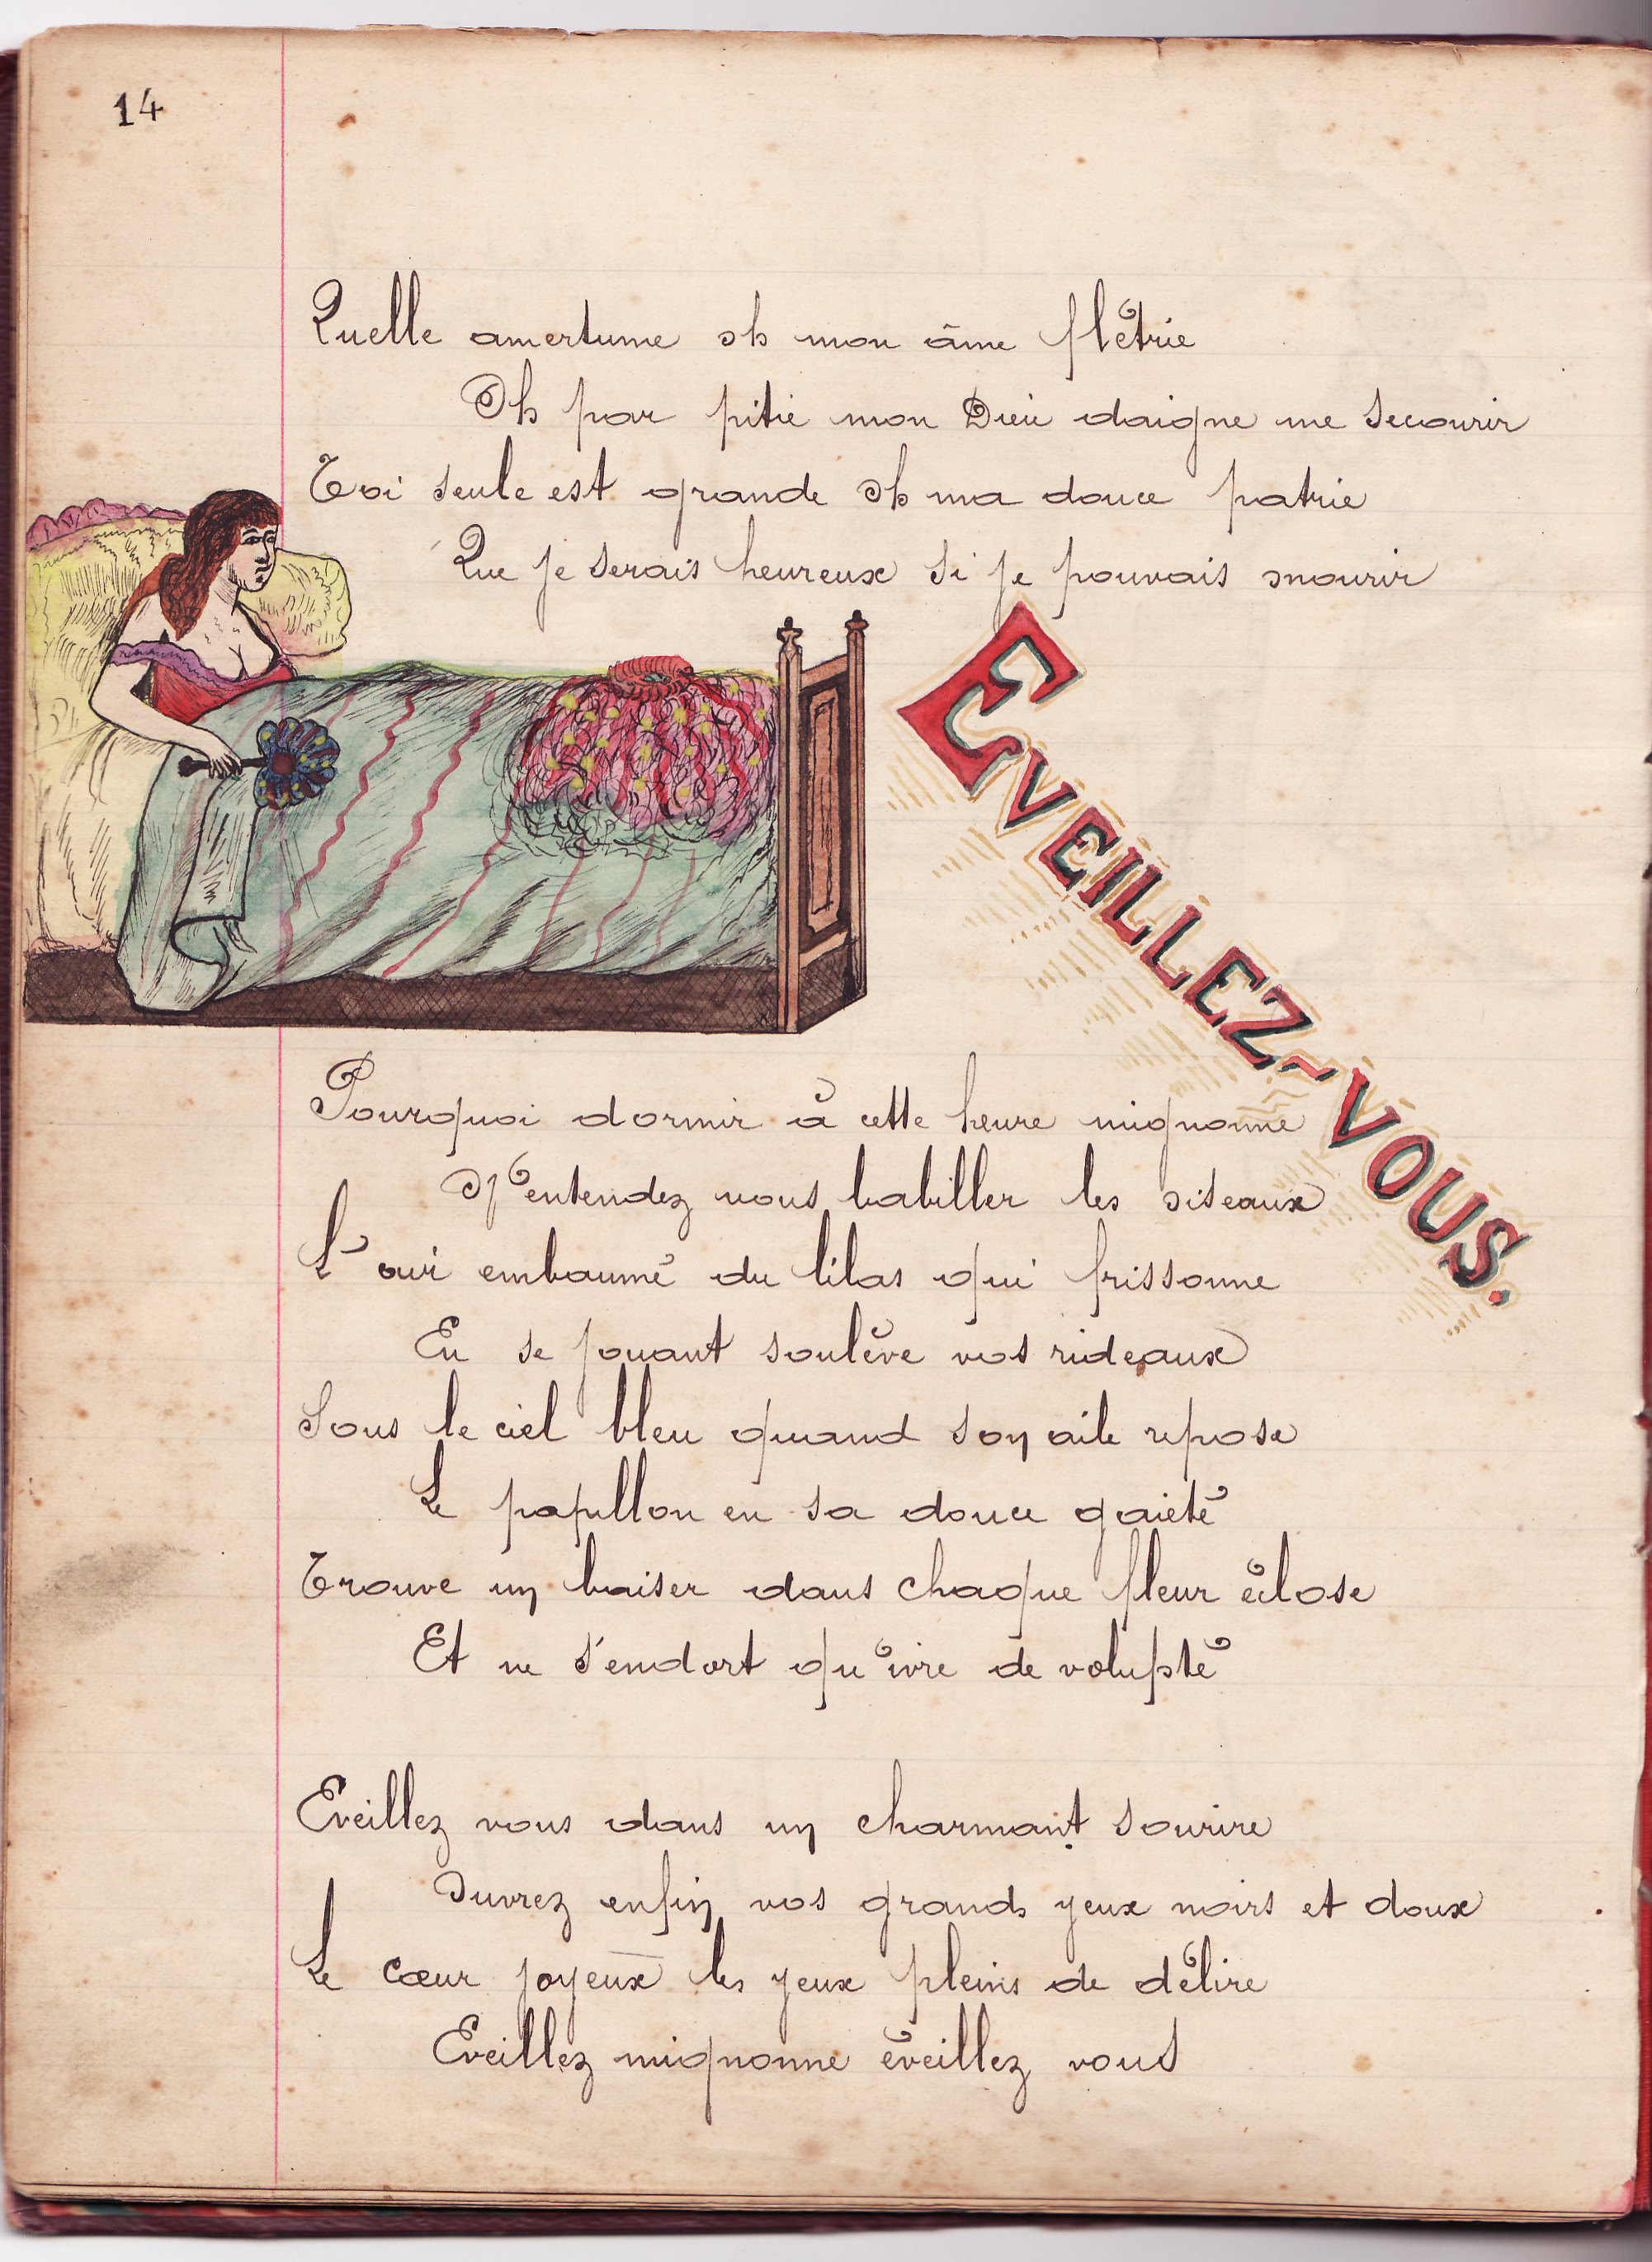 14
Quelle amertume oh mon âme flétrie
Oh par pitié mon Dieu daigne me secourir
Toi seule est grande oh ma douce patrie
Que je serais heureux si je pouvais mourir
EVEILLEZ-VOUS.
Pourquoi dormir à cette heure mignonne
N'entendez vous babiller les oiseaux
L'air embaumé du lilas qui frissonne
En se jouant soulève vos rideaux
Sous le ciel bleu quand son aile repose
Le papillon en sa douce gaieté
Trouve un baiser dans chaque fleur éclose
Et ne s'endort qu'ivre de volupté
Eveillez vous dans un charmant sourire
Ouvrez enfin vos grands yeux noirs et doux
Le cœur joyeux les yeux pleins de délire
Eveillez mignonne éveillez vous